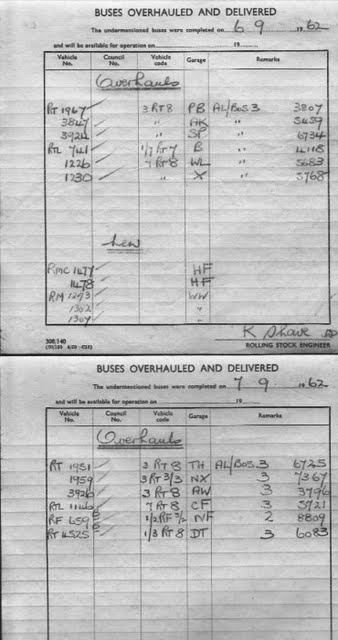 BUSES OVERHAULED AND DELIVERED
The undermentioned buses were completed on 6 9 1962
and will be available for operation on 19
Vehicle No. Council No. Vehicle code Garage Remarks
Overhauls
RT 1967 ✓ 3 RT 8 PB AL/BOS.3 3807
3847 ✓ " AK " 5459
3924 ✓ " SP " 6734
RTL 741 ✓ 1/7 RT 7 B " 4118
1226 ✓ 7 RT 8 WL " 5683
1230 ✓ " X " 5768
New
RMC 1477 ✓ HF
1478 ✓ HF
RM 1293 ✓ WW
1302 ✓ "
1307 ✓ "
K Shave
ROLLING STOCK ENGINEER
300.140
BUSES OVERHAULED AND DELIVERED
The undermentioned buses were completed on 7 9 1962
and will be available for operation on 19
Vehicle No. Council No. Vehicle code Garage Remarks
Overhauls
RT 1951 ✓ 3 RT 8 TH AL/BOS.3 6725
1959 ✓ 3 RT 3/3 NX 3 7367
3926 ✓ 3 RT 8 AW 3 3796
RTL 1146 ✓ 7 RT 8 CF 3 5721
RF 659 1/2 RF 3/2 NF 2 8809
RT 4525 ✓ 1/3 RT 8 DT 3 6083